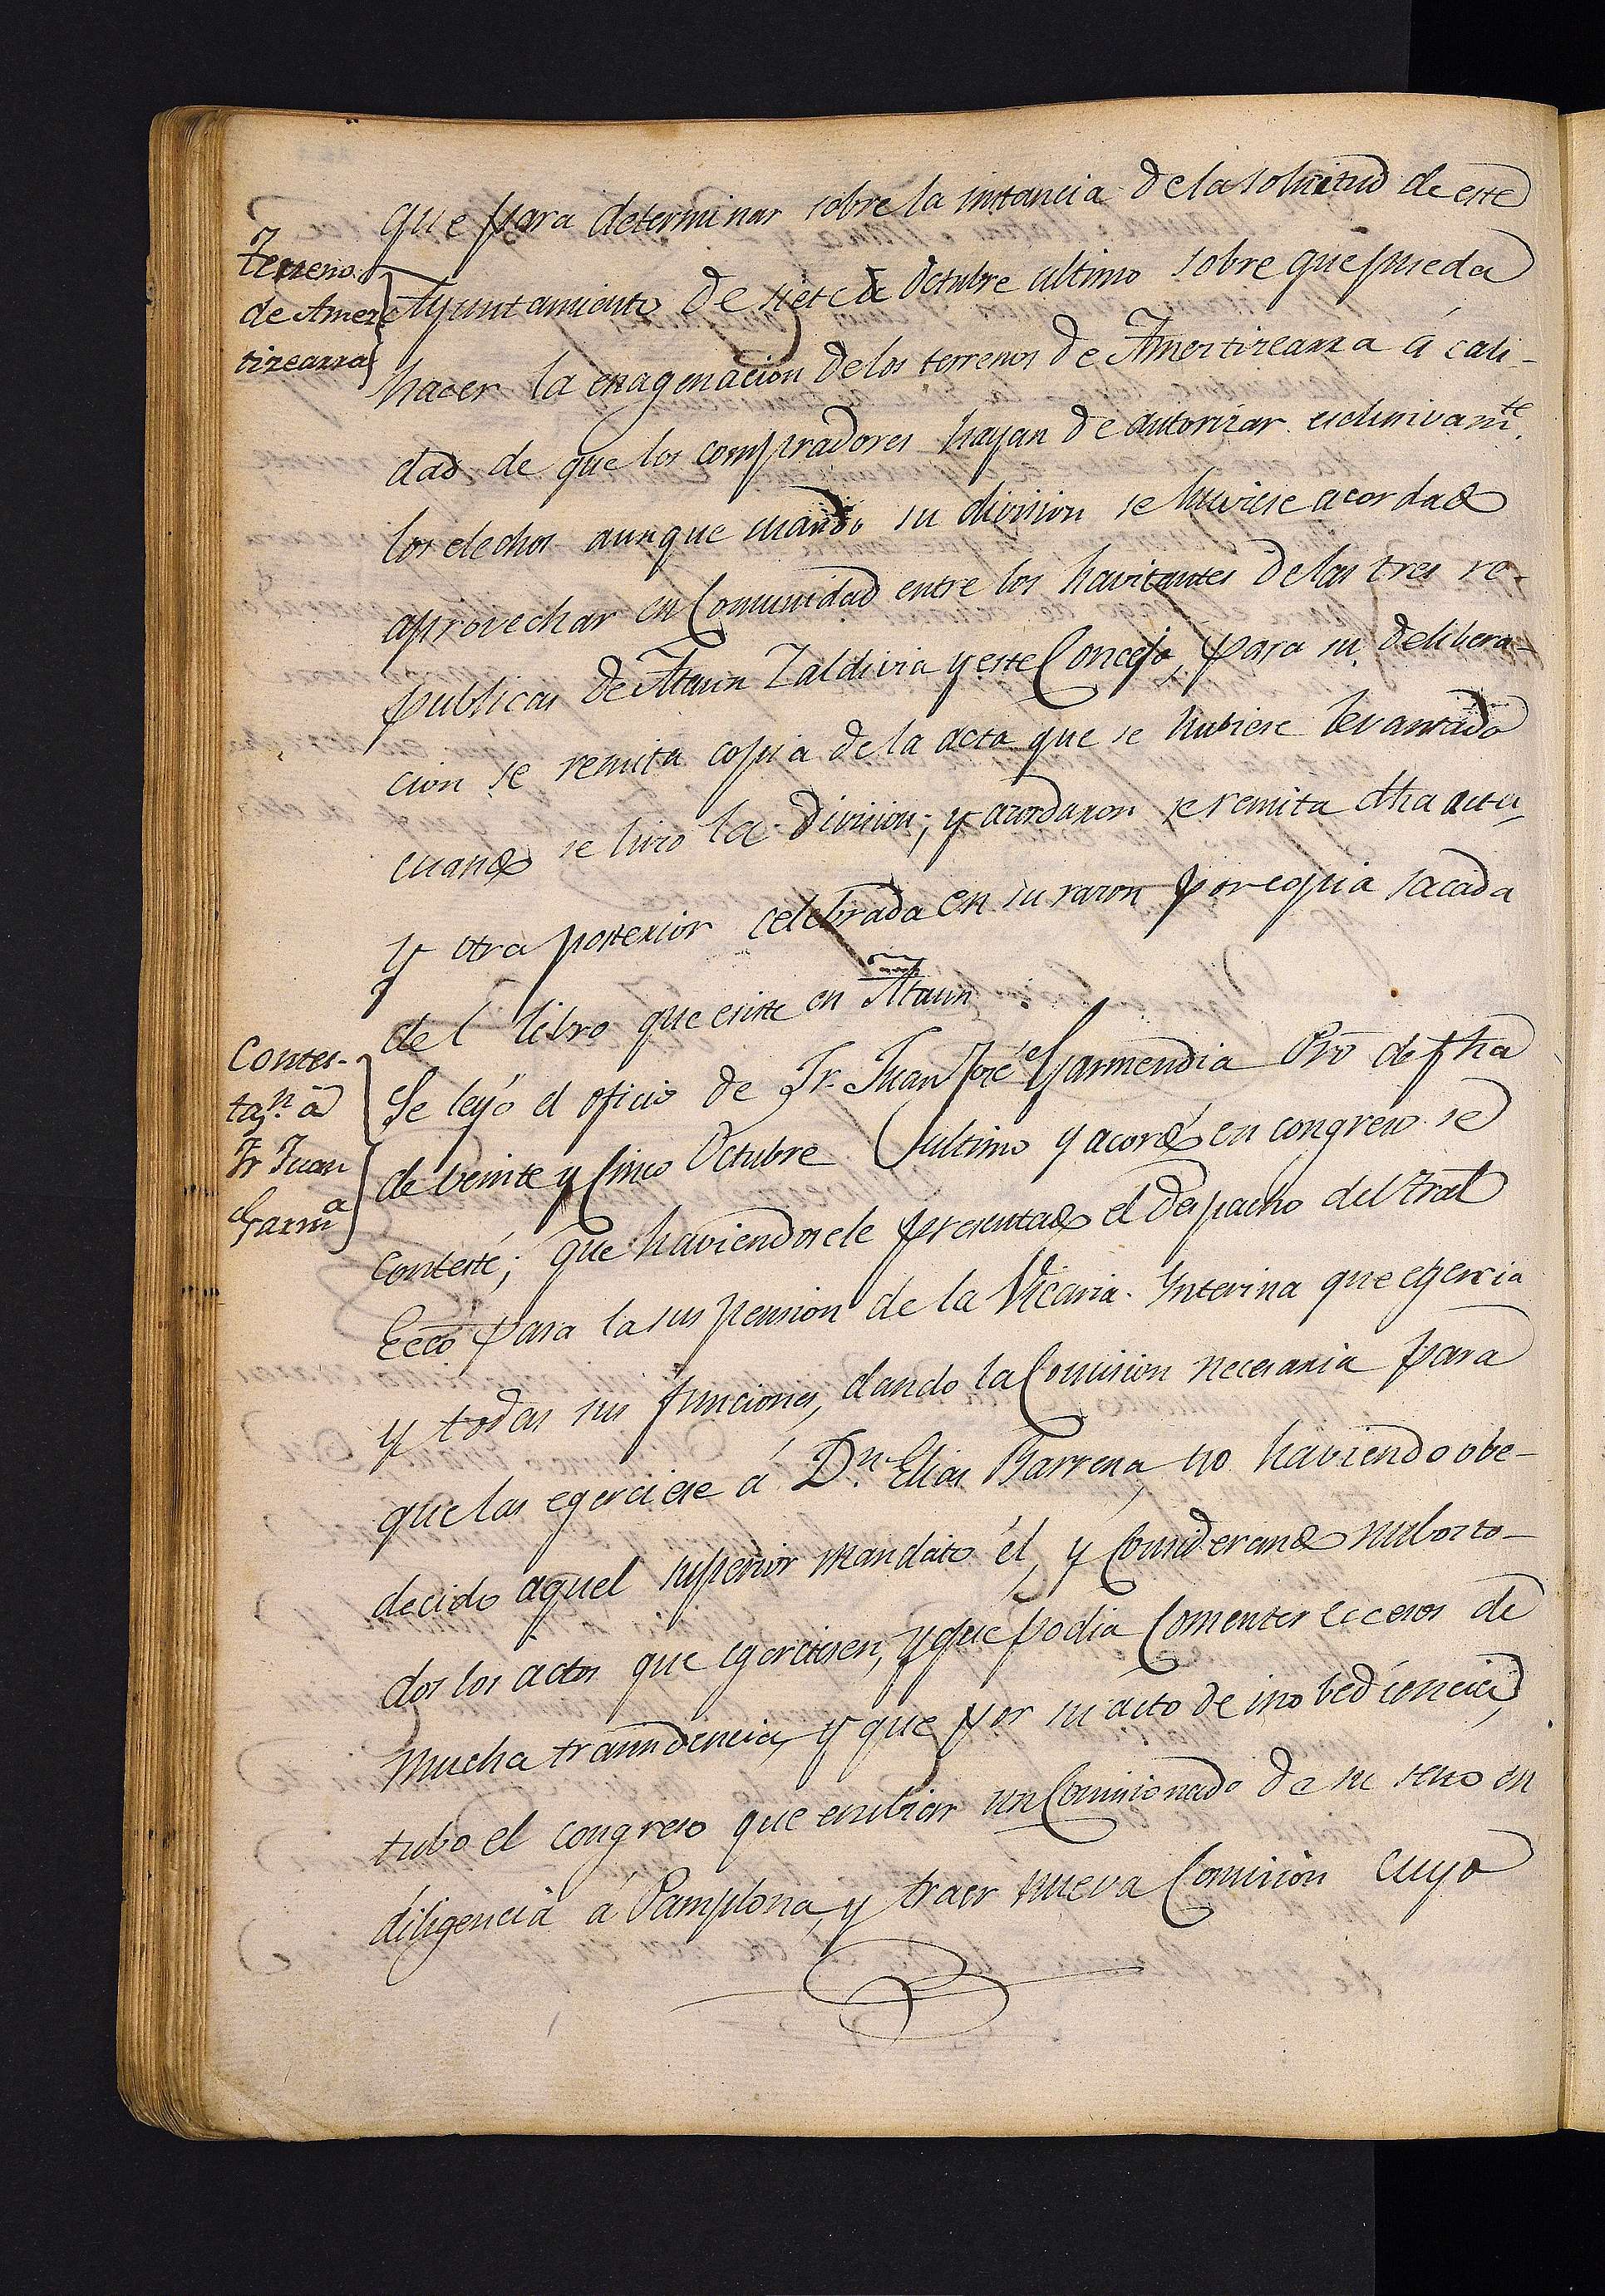 que para determinar sobre la instancia de la solicitud de este
Terreno
de Amez
tizcarra
Ayuntamiento de siete de Octubre ultimo sobre que pueda
hacer la enagenacion de los terrenos de Ameztizcarra á cali-
dad de que los compradores hayan de autorizar esclusivamte.
los elechos aunque cuando su division se huviese acordado
aprovechar en Comunidad entre los havitantes de las tres re-
publicas de Ataun Zaldivia y este Concejo, para su delibera-
cion se remita copia de la acta que se hubiese levantado
cuando se hizo la division; y acordaron se remita dha acta,
y otra posterior celebrada en su razon por copia sacada
del libro que esiste en Ataun
Contes-
tazn. á
Fr Juan
Garma
Se leyó el oficio de Fr. Juan José Garmendia Pro de fha
de veinte y Cinco Octubre ultimo y acordó en congreso se
conteste; que haviendosele presentado el Despacho del Tral
Ecco para la suspension de la Vicaria Interina que egercia
y todas sus funciones, dando la Comision necesaria para
que las egerciese á Dn. Elias Barrena, no haviendo obe-
decido aquel superior mandato él, y Considerando nulos to-
dos los actos que egerciesen, y que podia Comenter ecesos de
mucha trasindencia, y que por su acto de inobediencia,
tubo el congreso que enbiar un Comisionado de su seno en
diligencia á Pamplona, y traer nueva Comision cuyo